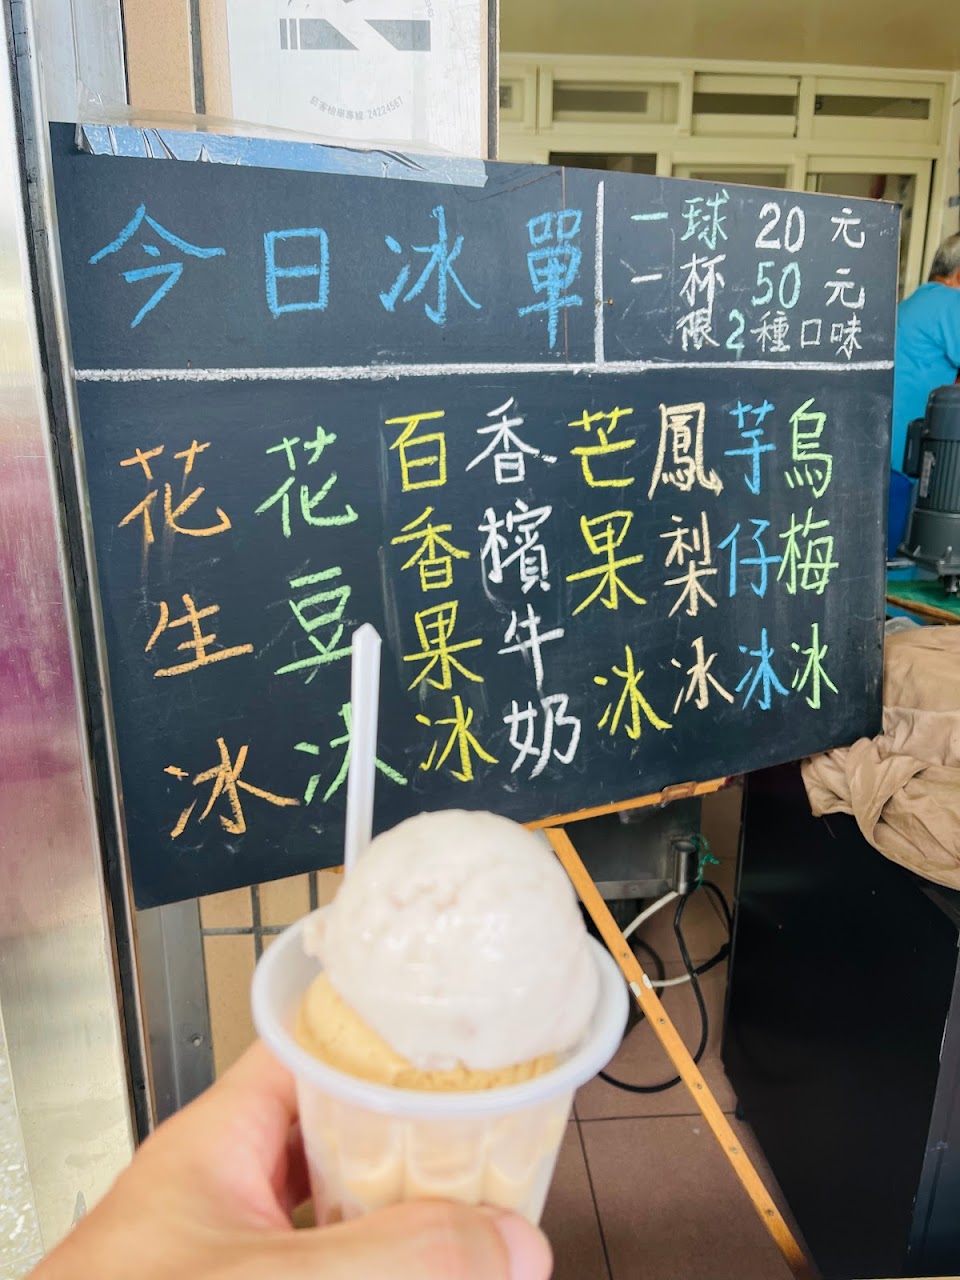 菸害檢舉專線 24224567
今日冰單
一球 20 元
一杯 50 元
限2種口味
烏梅冰
芋仔冰
鳳梨冰
芒果冰
香檳牛奶
百香果冰
花豆冰
花生冰